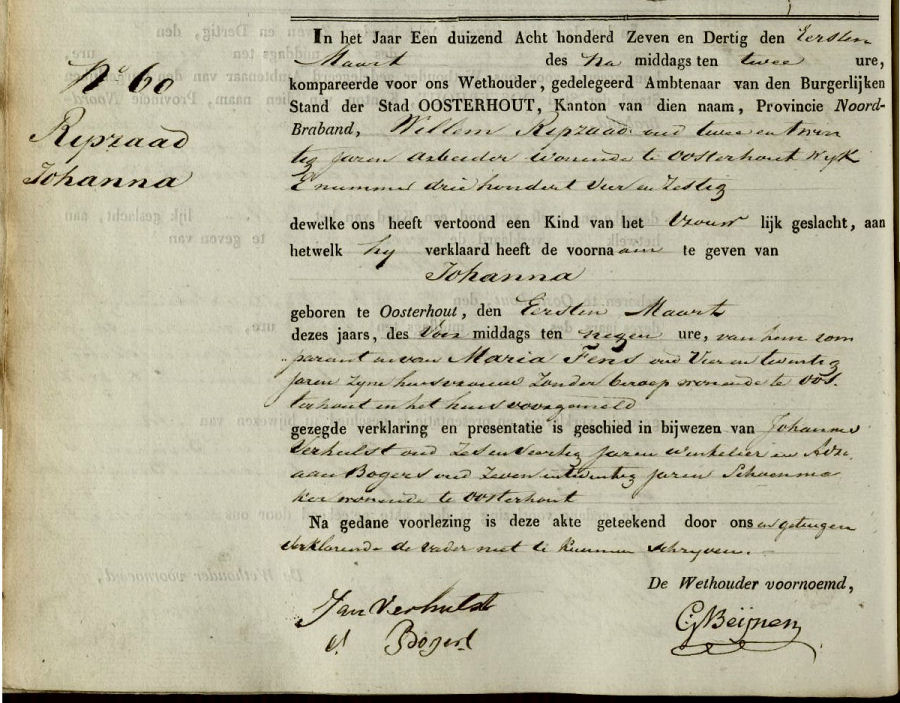 No 60
Repzaad
Johanna
In het Jaar Een duizend Acht honderd Zeven en Dertig den Eersten
Maart des Na middags ten twee ure,
kompareerde voor ons Wethouder, gedelegeerd Ambtenaar van den Burgerlijken
Stand der Stad OOSTERHOUT, Kanton van dien naam, Provincie Noord-
Braband, Willem Repzaad oud twee en twin
tig jaren arbeider wonende te Oosterhout wyk
E nummer drie hondert vier en zestig
dewelke ons heeft vertoond een Kind van het vrouw lijk geslacht, aan
hetwelk hy verklaard heeft de voornaam te geven van
Johanna
geboren te Oosterhout, den Eersten Maart
dezes jaars, des Voor middags ten negen ure, van hem com
parant en van Maria Fens oud Vier en twintig
jaren zyne huisvrouw zonder beroep wonende te Oos
terhout in het huis voorgemeld
gezegde verklaring en presentatie is geschied in bijwezen van Johannes
Verhulst oud zes en veertig jaren winkelier en Adri
aan Bogers oud zeven en twintig jaren Schoenma
ker wonende te Oosterhout
Na gedane voorlezing is deze akte geteekend door ons en getuigen
verklarende de vader niet te kunnen schryven.
De Wethouder voornoemd,
Jan Verhulst
A Bogers
Beijnen